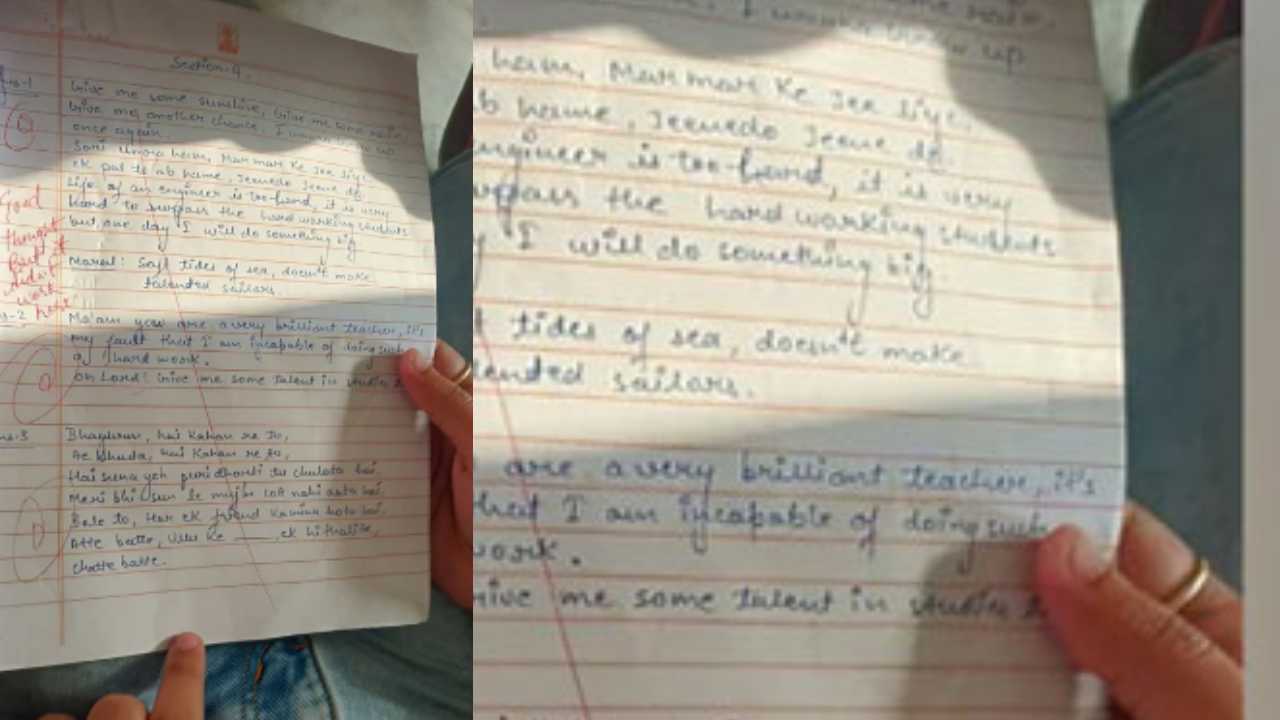 Section-A.
Give me some sunshine, Give me some rain,
Give me another chance, I wanna grow up
once again.
Sari Umra haim, Mar mark Ke Jee liye.
ek pal to ab hame, Jeenedo Jeene do
Life of an engineer is too hard, it is very
hard to surpass the hard working students
but one day I will do something big.
Moral: Soft tides of sea, doesn't make
talented sailors.
Good
thought
But it
didn't
work
here
Ma'am you are a very brilliant teacher, it's
my fault that I am incapable of doing such
of hard work.
Oh Lord! Give me some talent in studies
Bhagwan, hai Kahan re tu,
Ae khuda, hai Kahan re tu,
Hai suna yeh puri dharti tu chalata hai.
Meri bhi sun le mujhe nahi aata hai.
Bale to, Har ek friend Kamina hota hai.
Ulu Ke ___, ek hi
haim, Mar mark Ke Jee liye.
ab hame, Jeenedo Jeene do
engineer is too hard, it is very
surpass the hard working students
I will do something big.
tides of sea, doesn't make
talented sailors.
are a very brilliant teacher, it's
that I am incapable of doing such
work.
Give me some talent in studies